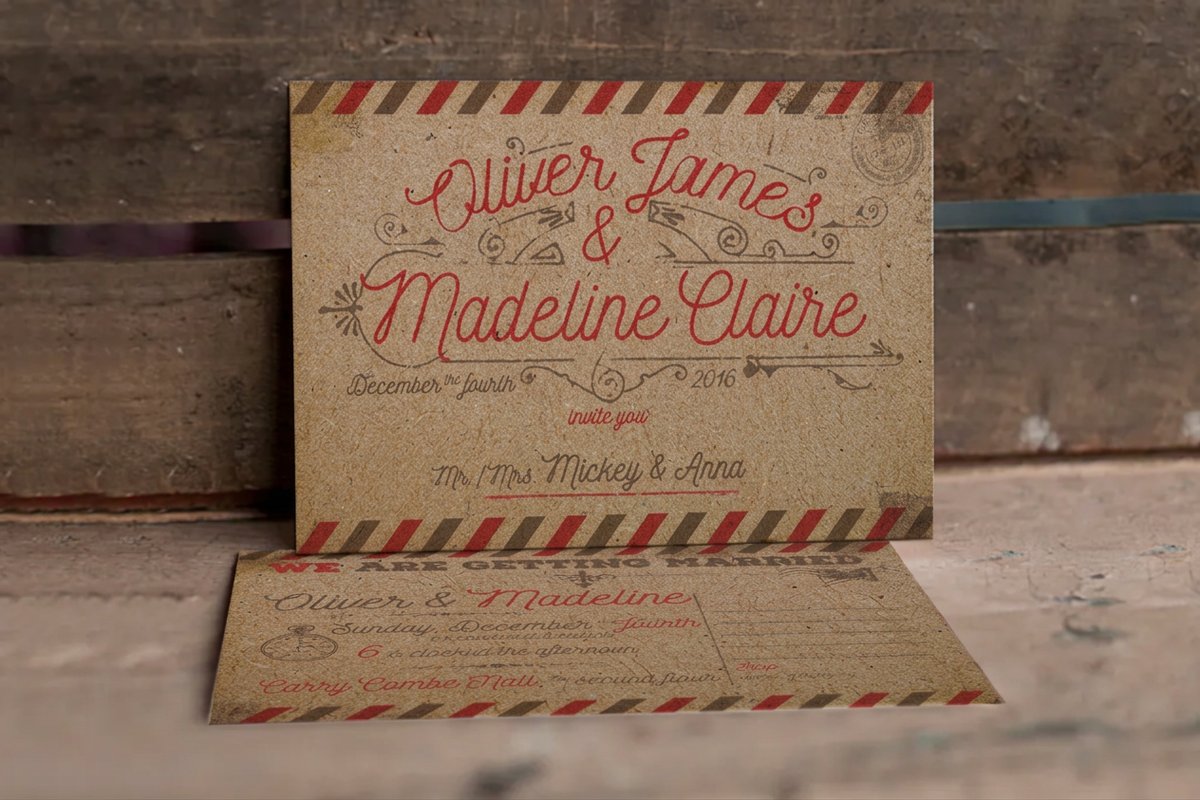 Oliver James
&
Madeline Claire
December the fourth 2016
invite you
Mr. / Mrs Mickey & Anna
WE ARE GETTING MARRIED
Oliver & Madeline
Sunday, December fourth
6 o clock in the afternoun
Carry Combe Hall, second flour